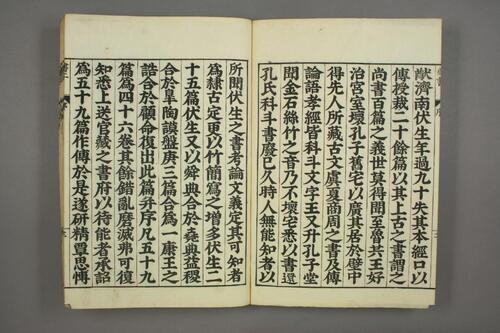 猷濟南伏生年過九十失其本經口以
傳授裁二十餘篇以其上古之書謂之
尚書百篇之義世莫得聞至魯共王好
治宮室壞孔子舊宅以廣其居於壁中
得先人所藏古文虞夏商周之書及傳
論語孝經皆科斗文字王又升孔子堂
聞金石絲竹之音乃不壞宅悉以書還
孔氏科斗書廢已久時人無能知者以
所聞伏生之書考論文義定其可知者
為隷古定更以竹簡寫之增多伏生二
十五篇伏生又以舜典合於堯典益稷
合於皐陶謨盤庚三篇合為一康王之
誥合於顧命復出此篇并序凡五十九
篇為四十六卷其餘錯亂磨滅弗可復
知悉上送官藏之書府以待能者承詔
為五十九篇作傳於是遂研精覃思愽